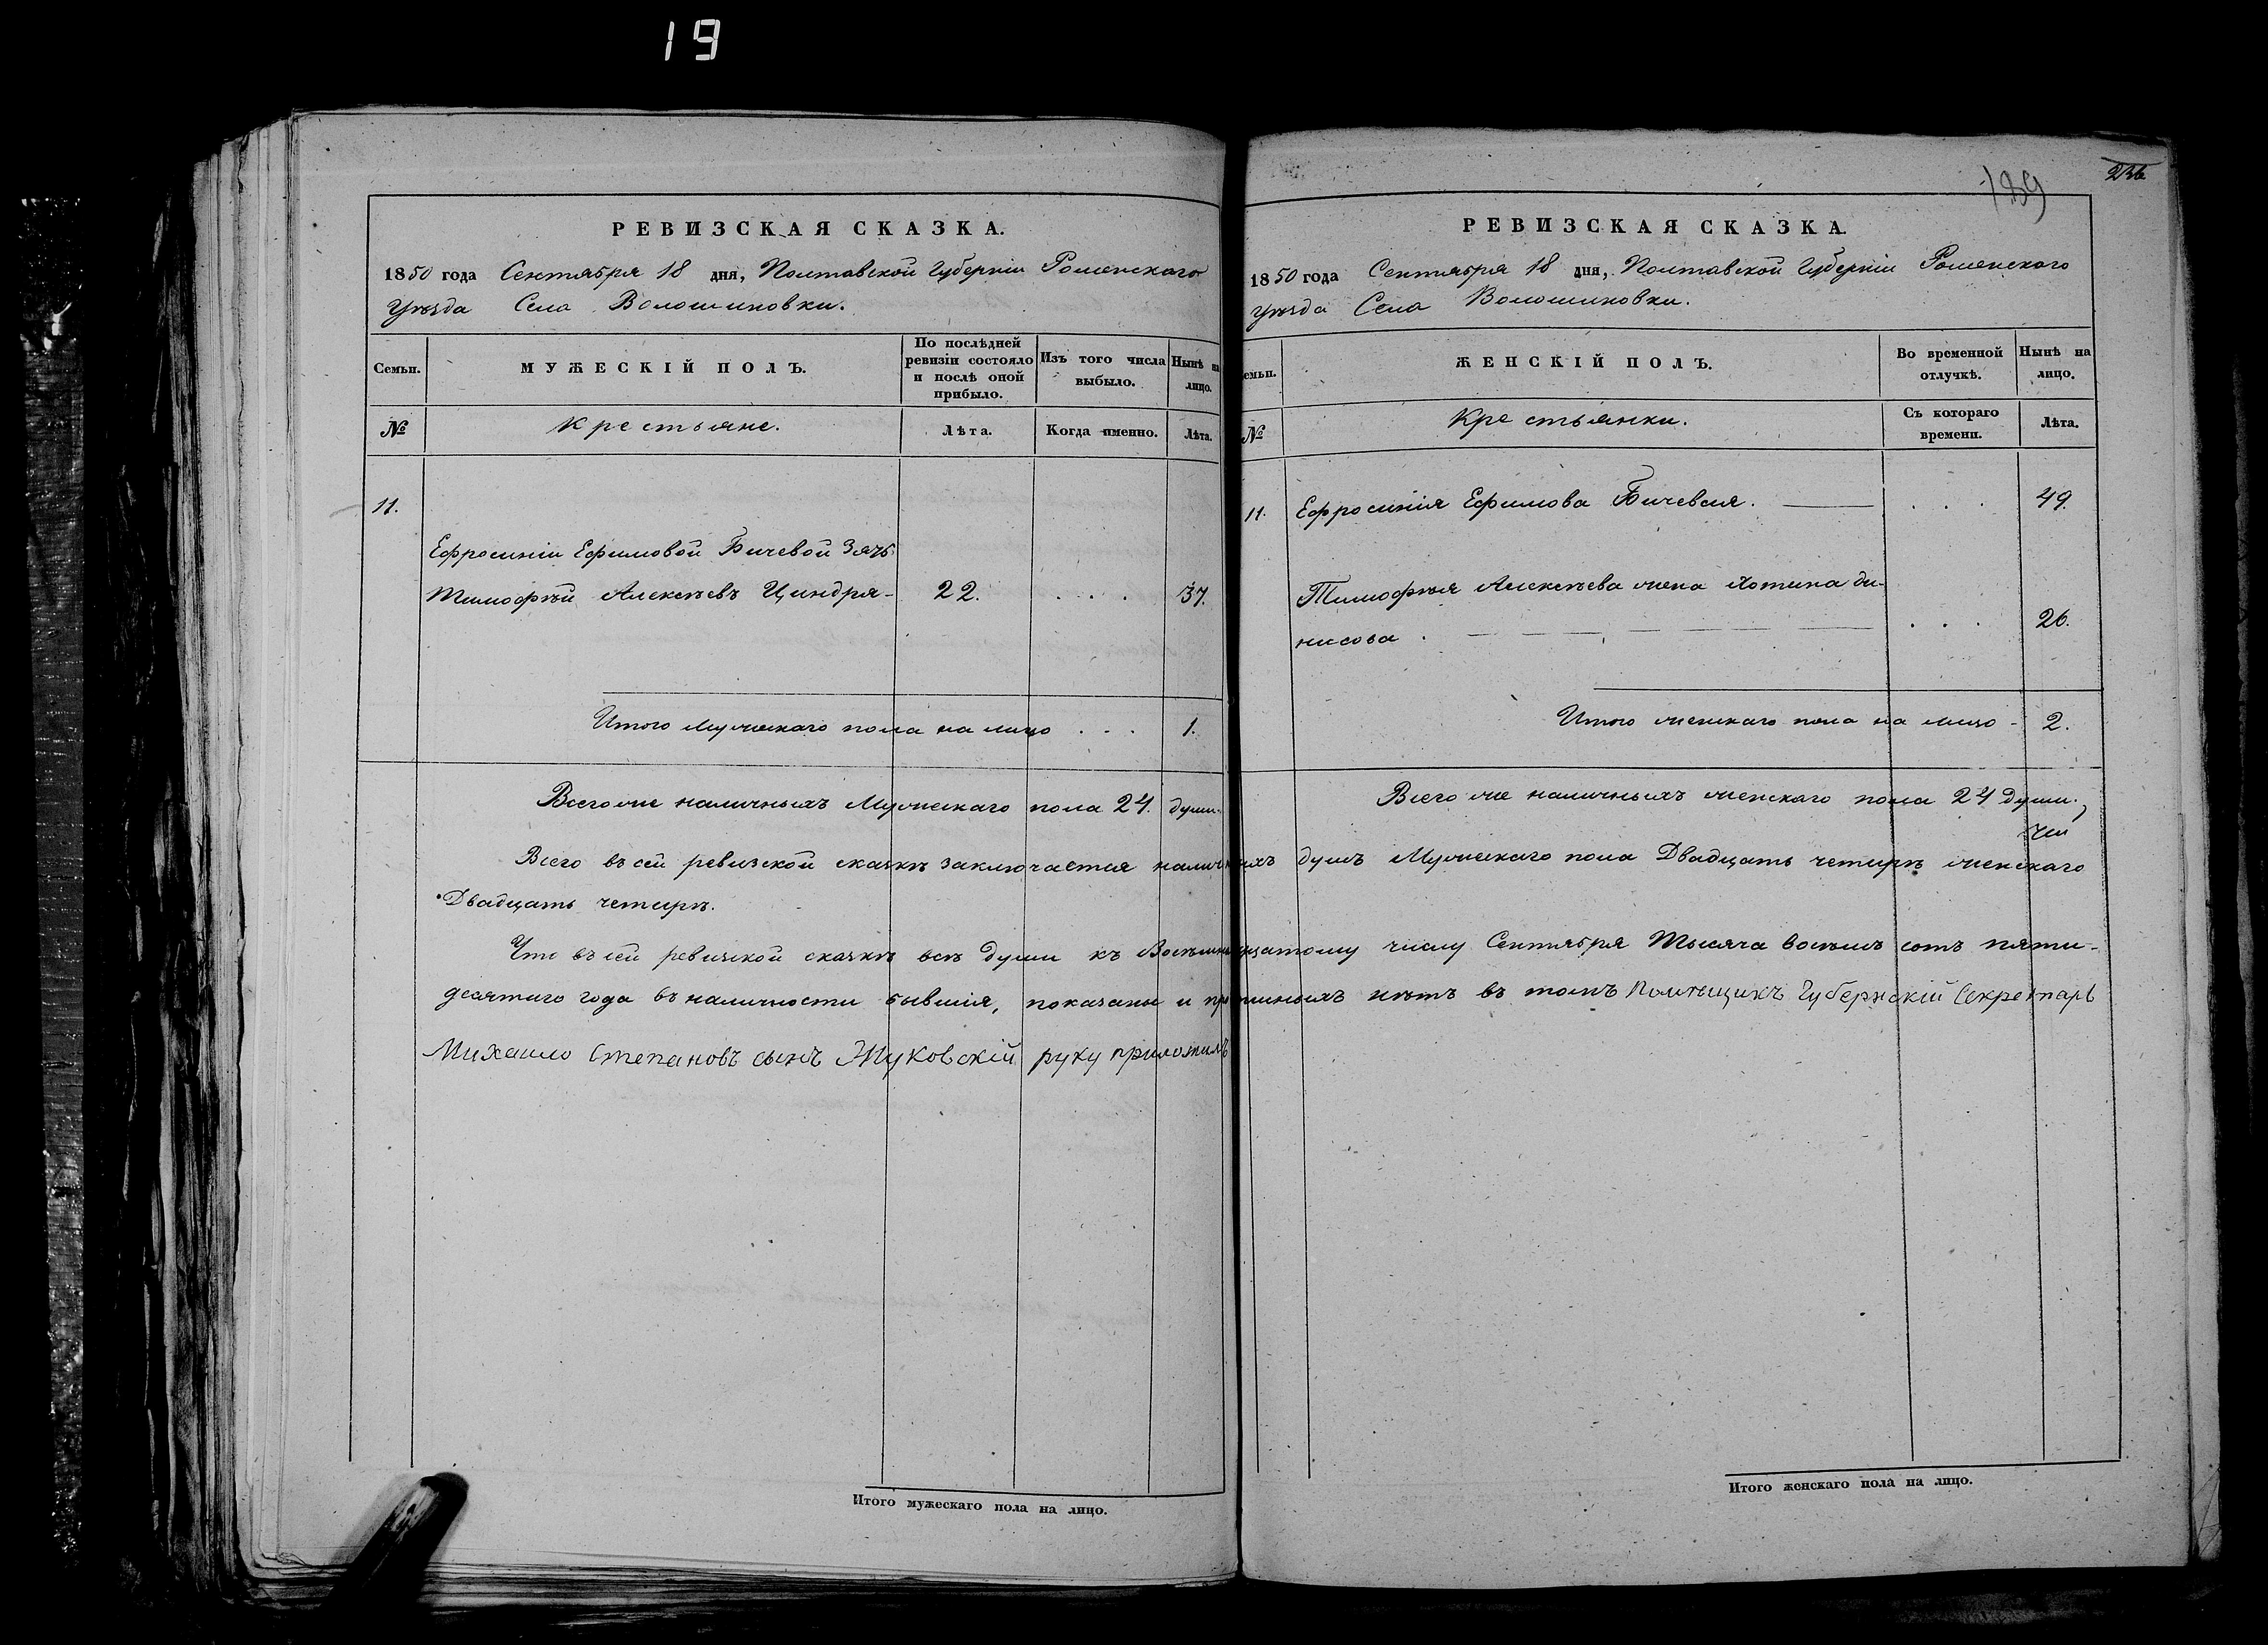 19
РЕВИЗСКАЯ СКАЗКА.
1850 года Сентября 18 дня, Полтавской Губерніи Роменского
Уѣзда Села Волошиновки.
Семьи.
МУЖЕСКІЙ ПОЛЪ.
По послѣдней ревизіи состояло и послѣ оной прибыло.
Изъ того числа выбыло.
Нынѣ на лицо.
№
Крестьяне.
Лѣта.
Когда именно.
Лѣта.
11.
Ефросиніи Ефимовой Бичевой Зять
Тимофѣй Алексѣевъ Циндря- 22. . . . 37.
Итого Мужескаго пола на лицо . . . 1.
Всего же наличныхъ Мужескаго пола 24. души.
189
236
РЕВИЗСКАЯ СКАЗКА.
1850 года Сентября 18 дня, Полтавской Губерніи Роменского
Уѣзда Села Волошиновки.
емьи.
ЖЕНСКІЙ ПОЛЪ.
Во временной отлучкѣ.
Нынѣ на лицо.
№
Крестьянки.
Съ котораго времени.
Лѣта.
11. Ефросинія Ефимова Бичевая. . . . 49.
Тимофѣя Алексѣева жена Хотина ди-
нисова . . . . 26.
Итого женскаго пола на лицо - 2.
Всего же наличныхъ женскаго пола 24 души.
Всего въ сей ревизской сказкѣ заключается наличныхъ душъ Мужескаго пола Двадцать четырѣ женскаго
Двадцать четырѣ.
Что въ сей ревизской сказкѣ всѣ души къ Восѣмнадцатому числу Сентября Тысяча восѣмъ сотъ пяти-
десятаго года въ наличности бывшія, показаны и прописныхъ нѣтъ въ томъ Помѣщикъ Губернскій Секретарь
Михайло Степановъ сынъ Жуковскій руку приложилъ
Итого мужескаго пола на лицо.
Итого женскаго пола на лицо.